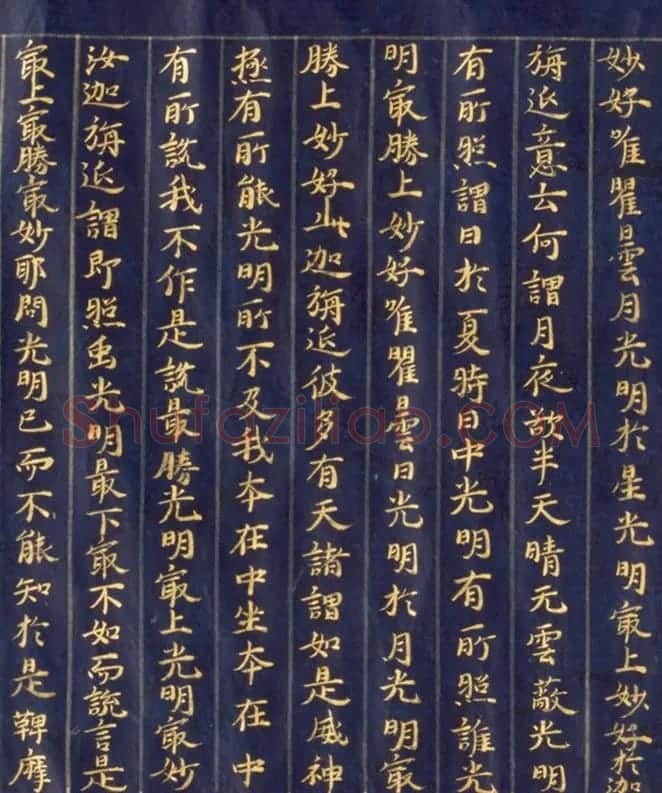 妙好唯瞿曇月光明於星光明冣上妙好於迦
旃延意云何謂月夜欲半天晴无雲蔽光明
有所照謂日於夏時日中光明有所照誰光
明冣勝上妙好唯瞿曇日光明於月光明冣
勝上妙好此迦旃延彼多有天諸謂如是威神
極有所能光明所不及我本在中坐本在中
有所說我不作是說最勝光明冣上光明冣妙
汝迦旃延謂即照虫光明最下冣不如而說言是
冣上冣勝冣妙耶問光明已而不能知於是鞞摩
Shufaziliao.COM